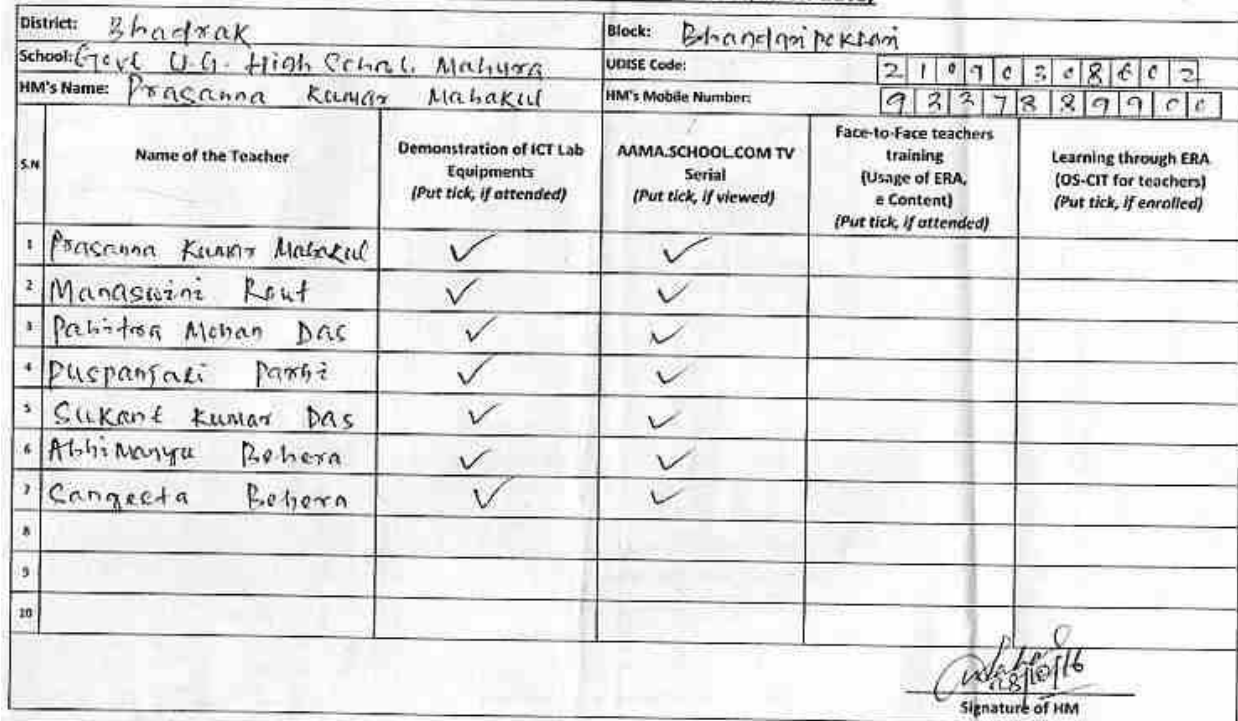 District: Bhadrak Block: Bhandaripokhari
School: Govt U.G. High School, Mahura UDISE Code: 21090308602
HM's Name: Prasanna Kumar Mahakul HM's Mobile Number: 9337889900
S.N Name of the Teacher Demonstration of ICT Lab Equipments (Put tick, if attended) AAMA.SCHOOL.COM TV Serial (Put tick, if viewed) Face-to-Face teachers training (Usage of ERA, e Content) (Put tick, if attended) Learning through ERA (OS-CIT for teachers) (Put tick, if enrolled)
1 Prasanna Kumar Mahakul ✓ ✓
2 Manaswini Rout ✓ ✓
3 Pabitra Mohan Das ✓ ✓
4 Puspanjali Parhi ✓ ✓
5 Sukant Kumar Das ✓ ✓
6 Abhimanyu Behera ✓ ✓
7 Sangeeta Behera ✓ ✓
8
9
10
18/10/16
Signature of HM